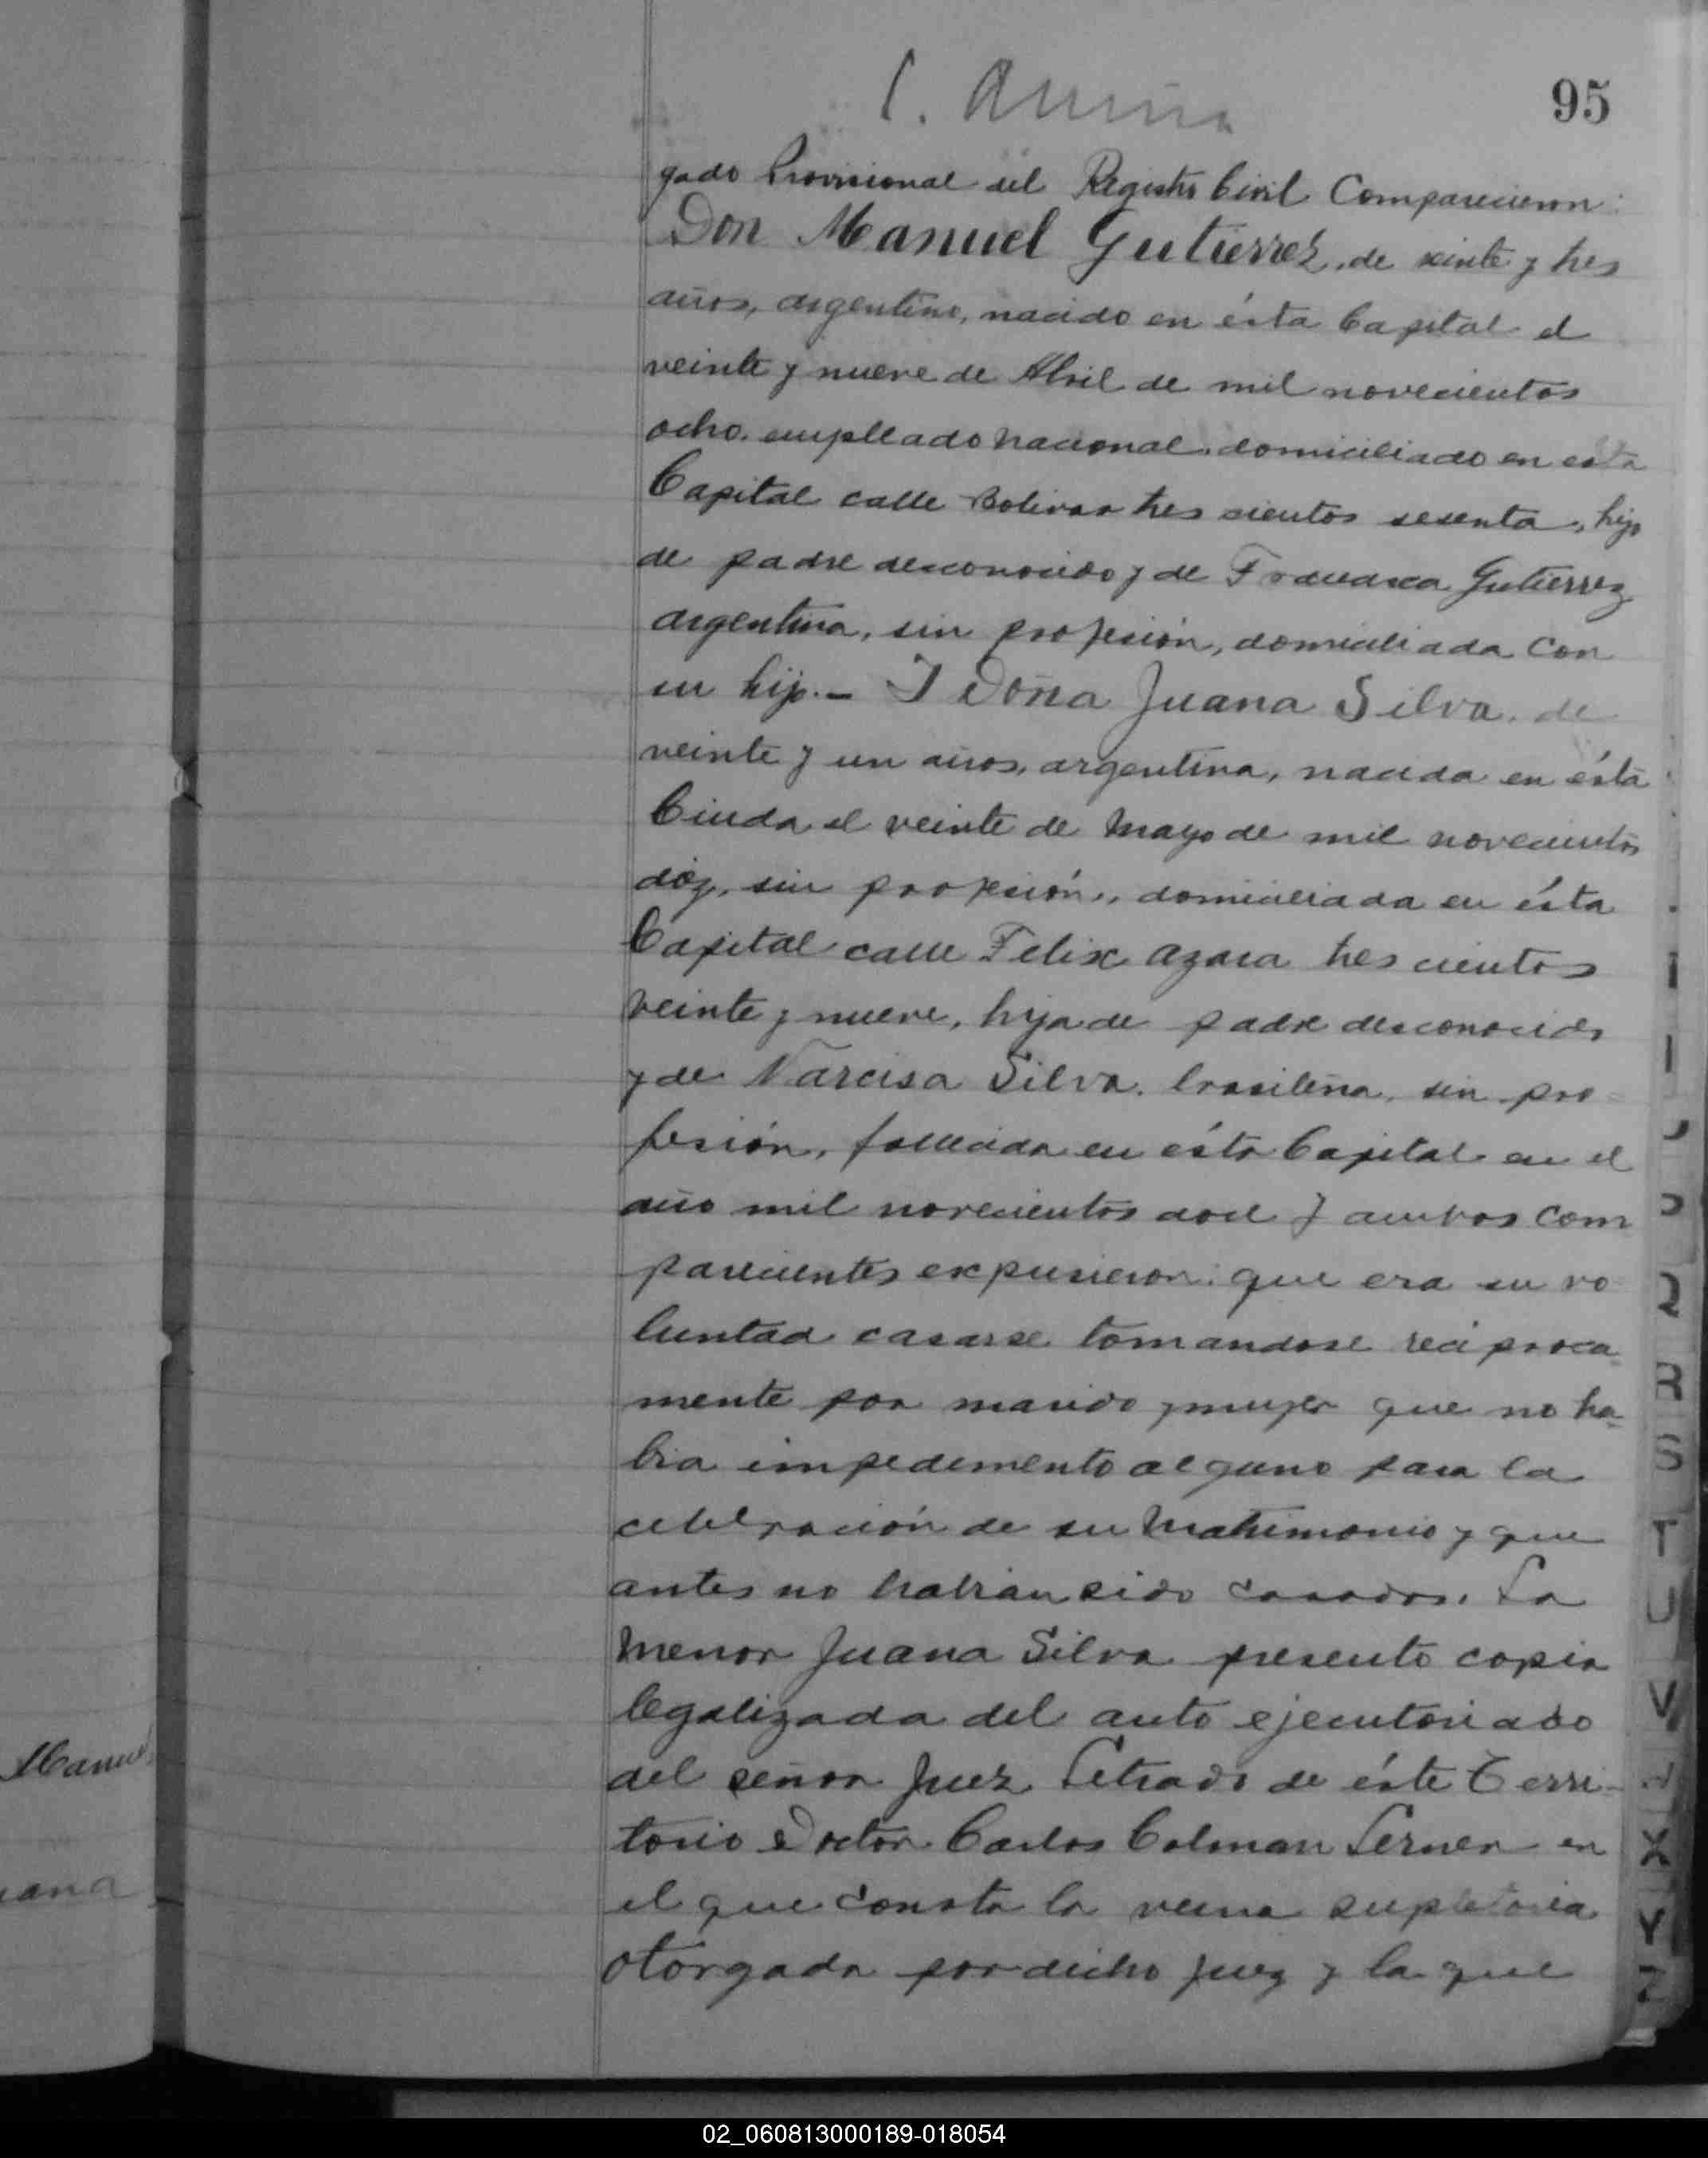 95
gado Provisional del Registro Civil Comparecieron:
Don Manuel Gutierrez, de veinte y tres
años, argentino, nacido en ésta Capital el
veinte y nueve de Abril de mil novecientos
ocho, empleado nacional, domiciliado en esta
Capital calle Bolivar tres cientos sesenta, hijo
de padre desconocido y de Francisca Gutierrez
argentina, sin profesión, domiciliada con
su hijo.- Y Doña Juana Silva, de
veinte y un años, argentina, nacida en ésta
Ciuda el veinte de Mayo de mil novecientos
diez, sin profesión, domiciliada en ésta
Capital calle Felix Azara tres cientos
veinte y nueve, hija de padre desconocido
y de Narcisa Silva, brasileña, sin pro
fesión, fallecida en ésta Capital en el
año mil novecientos doce Y ambos com
parecientes expusieron: que era su vo
luntad casarse tomandose reciproca
mente por marido y mujer que no ha-
bia impedimento alguno para la
celebración de su Matrimonio y que
antes no habian sido casados. La
Menor Juana Silva presentó copia
legalizada del auto ejecutoriado
del señor Juez Letrado de éste Terri-
torio Doctor Carlos Colman Lerner en
el que consta la venia supletoria
otorgada por dicho juez y la que
Manuel
uana
R
S
T
U
V
X
Y
Z
02_060813000189-018054